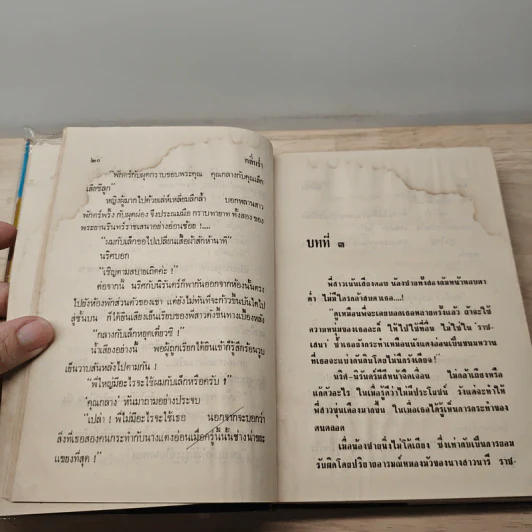 ๒๐ กลิ่นร่ำ
"พักตร์กับผุดกราบขอบพระคุณ คุณกลางกับคุณเล็ก
เสียซีลูก"
หญิงผู้มากไปด้วยเล่ห์เหลี่ยมลึกล้ำ บอกหลานสาว
พักตร์พริ้ง กับผุดผ่อง จึงประณมมือ กราบทาบาท ทั้งสอง ของ
พระยานรินทร์ราชเสนาอย่างอ่อนช้อย !....
"ผมกับเล็กขอไปเปลี่ยนเสื้อผ้าสักห้านาที"
นริศบอก
"เชิญตามสบายเถิดค่ะ !"
ต่อจากนั้น นริศกับนิรันดร์ก็พากันออกจากห้องนั้นตรง
ไปยังห้องพักส่วนตัวของเขา แต่ยังไม่ทันที่จะก้าวขึ้นบันไดไป
สู่ชั้นบน ก็ได้ยินเสียงเย็นเรียบของพี่สาวดังขึ้นทางเบื้องหลัง
"กลางกับเล็กหยุดเดี๋ยวซิ !"
น้ำเสียงอย่างนั้น พอผู้ถูกเรียกได้ยินเข้าก็รู้สึกร้อนวูบ
เย็นวาบสันหลังไปตามกัน !
"พี่ใหญ่มีอะไรจะใช้ผมกับเล็กหรือครับ !"
'คุณกลาง' หันมาถามอย่างประจบ
"เปล่า ! พี่ไม่มีอะไรจะใช้เธอ นอกจากจะบอกว่า
สิ่งที่เธอสองคนกระทำกับนางแดงอ่อนเมื่อครู่นี้นั้นช่างน่าขยะ
แขยงที่สุด !"
บทที่ ๓
พี่สาวเน้นเสียงตอบ น้องชายทั้งสองก้มหน้าหลบตา
ต่ำ ไม่มีใครกล้าสบตาเธอ....!
"ดูเหมือนพี่จะเคยบอกเธอหลายครั้งแล้ว ถ้าจะใช้
ความหนุ่มของเธอละก็ ให้ไปใช้ที่อื่น ไม่ใช่ใน ราช-
เสนา' ขืนเธอยังกระทำเหมือนนังแดงอ่อนเป็นขนมหวาน
ที่เธอจะแบ่งกันกินโดยไม่นึกรังเกียจ !"
นริศ-นิรันดร์มีสีหน้าจืดเจื่อน ไม่กล้าเถียงหรือ
แก้ตัวอะไร ในเมื่อรู้ดีว่าไม่มีประโยชน์ รังแต่จะทำให้
พี่สาวขุ่นเคืองมากขึ้น ในเมื่อเธอได้รู้เห็นการกระทำของ
ตนตลอด
เมื่อน้องชายนิ่งไม่โต้เถียง ซึ่งเท่ากับเป็นการยอม
รับผิดโดยปริยายอารมณ์หมองมัวของนางสาวนารี ราช-